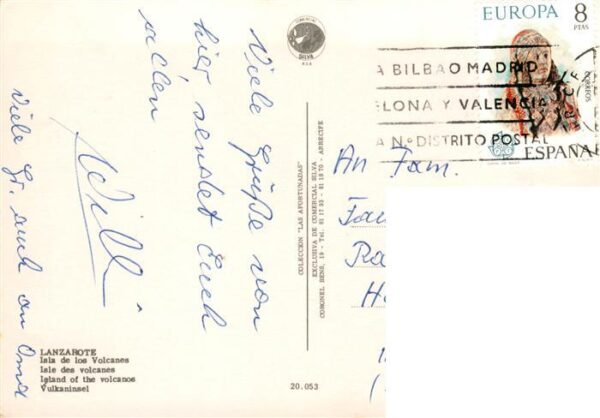 Viele Grüße von
hier, sendet Euch
allen
Willi
Viele Gr. auch an Oma
LANZAROTE
Isla de los Volcanes
Isle des volcanes
Island of the volcanos
Vulkaninsel
20.053
COMERCIAL
SILVA
COLECCION "LAS AFORTUNADAS"
EXCLUSIVA DE COMERCIAL SILVA
CORONEL BENS, 19 - Tel. 81 17 93 - 81 18 70 - ARRECIFE
EUROPA 8
PTAS
CORREOS
ESPAÑA
A BILBAO MADRID
ELONA Y VALENCIA
A Nº DISTRITO POSTAL
An Fam.